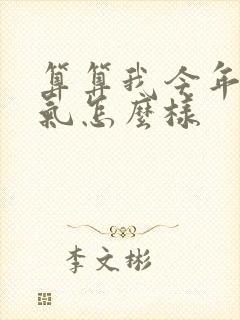 算算我今年
氣怎麼樣
李文彬